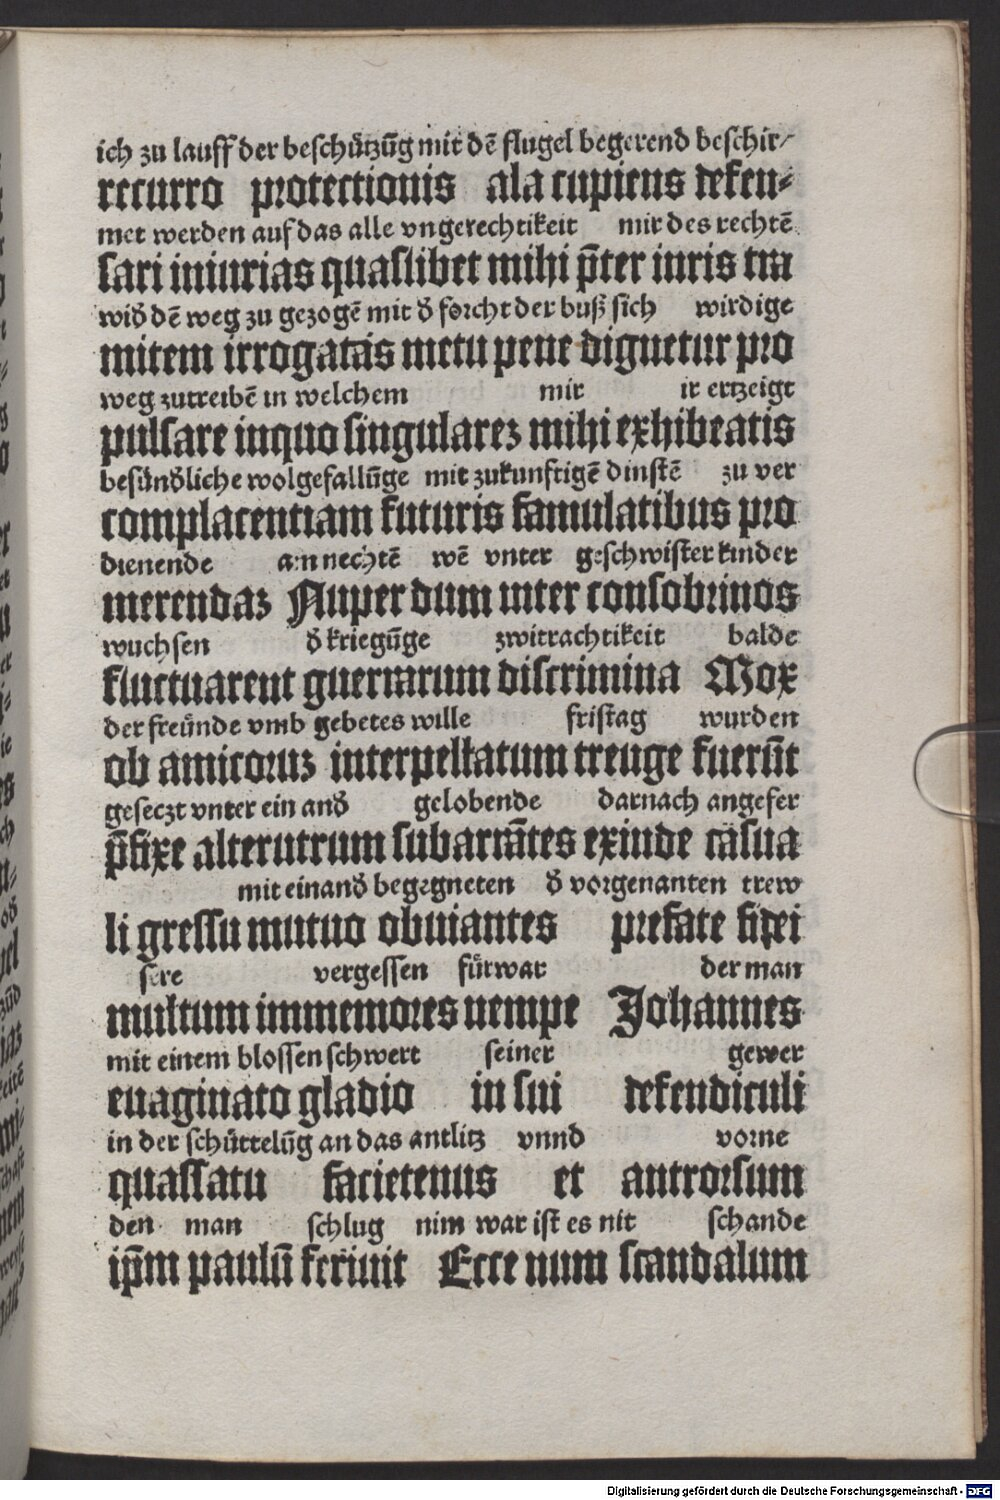 ich zu lauff der beschützūg mit dē flugel begerend beschir⸗
recurro protectionis ala cupiens defen⸗
met werden auf das alle vngerechtikeit mir des rechtē
sari iniurias quaslibet mihi p̄ter iuris tra
wid dē weg zu gezogē mit d forcht der buß sich wirdige
mitem irrogatas metu pene dignetur pro
weg zutreibē in welchem mir ir ertzeigt
pulsare inquo singularez mihi exhibeatis
besündliche wolgefallūge mit zukunftigē dinstē zu ver
complacentiam futuris famulatibus pro
dienende am nechtē wē vnter geschwister kinder
merendaz Nuper dum inter consobrinos
wuchsen d kriegūge zwitrachtikeit balde
fluctuarent guerrarum discrimina Mox
der freünde vmb gebetes wille fristag wurden
ob amicoruz interpellatum treuge fuerūt
geseczt vnter ein and gelobende darnach angefer
p̄fixe alterutrum subarrātes exinde casua
mit einand begegneten d vorgenanten trew
li gressu mutuo obuiantes prefate fidei
sere vergessen fürwar der man
multum immemores nempe Johannes
mit einem blossen schwert seiner gewer
euaginato gladio in sui defendiculi
in der schüttelūg an das antlitz vnnd vorne
quassatu facietenus et antrorsum
den man schlug nim war ist es nit schande
ip̄m paulū feriuit Ecce num scandalum
Digitalisierung gefördert durch die Deutsche Forschungsgemeinschaft - DFG